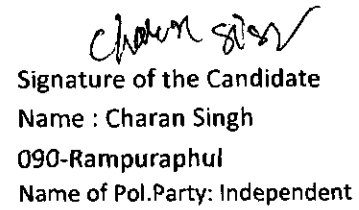 Charan Singh
Signature of the Candidate
Name : Charan Singh
090-Rampuraphul
Name of Pol.Party: Independent